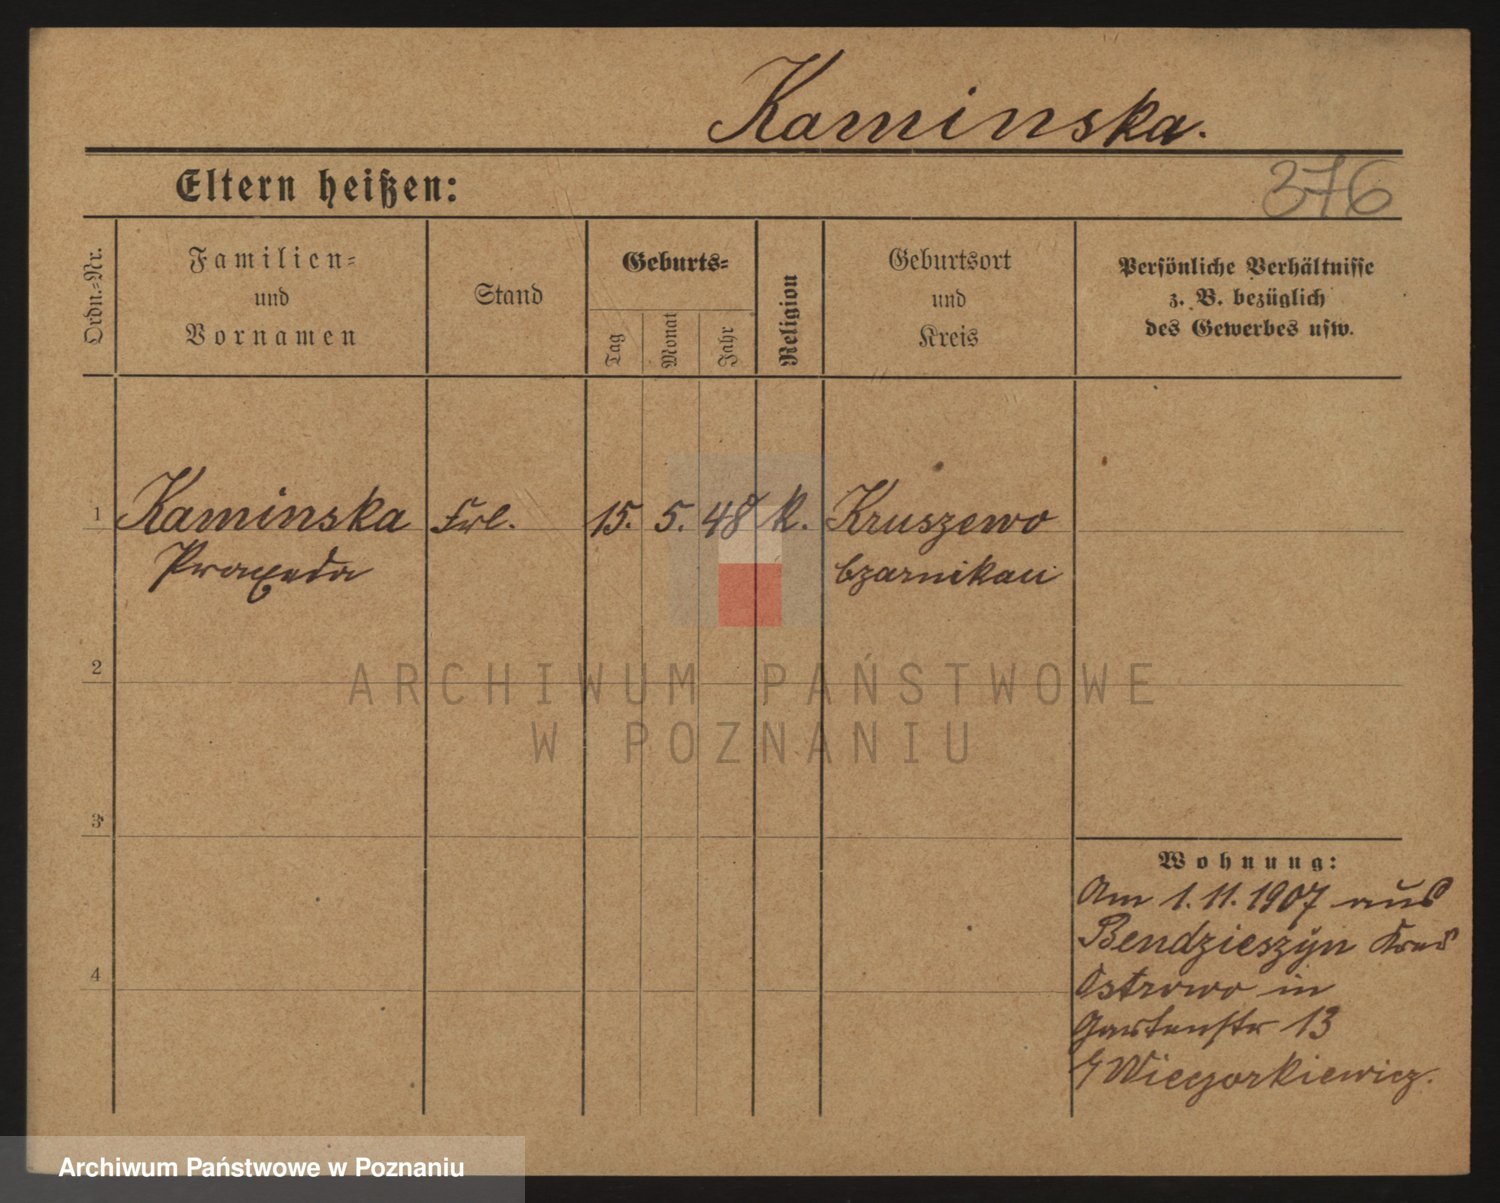 Kaminska.
Eltern heißen:
376
Ordn.-Nr.
Familien-
und
Vornamen
Stand
Geburts-
Tag
Monat
Jahr
Religion
Geburtsort
und
Kreis
Persönliche Verhältnisse
z. B. bezüglich
des Gewerbes usw.
1 Kaminska Frl. 15. 5. 48 k. Kruszewo
Praxeda Czarnikau
2
ARCHIWUM PAŃSTWOWE
W POZNANIU
3
Wohnung:
Am 1. 11. 1907 aus
Bendzieszyn Kreis
4
Ostrowo in
Gartenstr 13
Wieczorkiewicz.
Archiwum Państwowe w Poznaniu